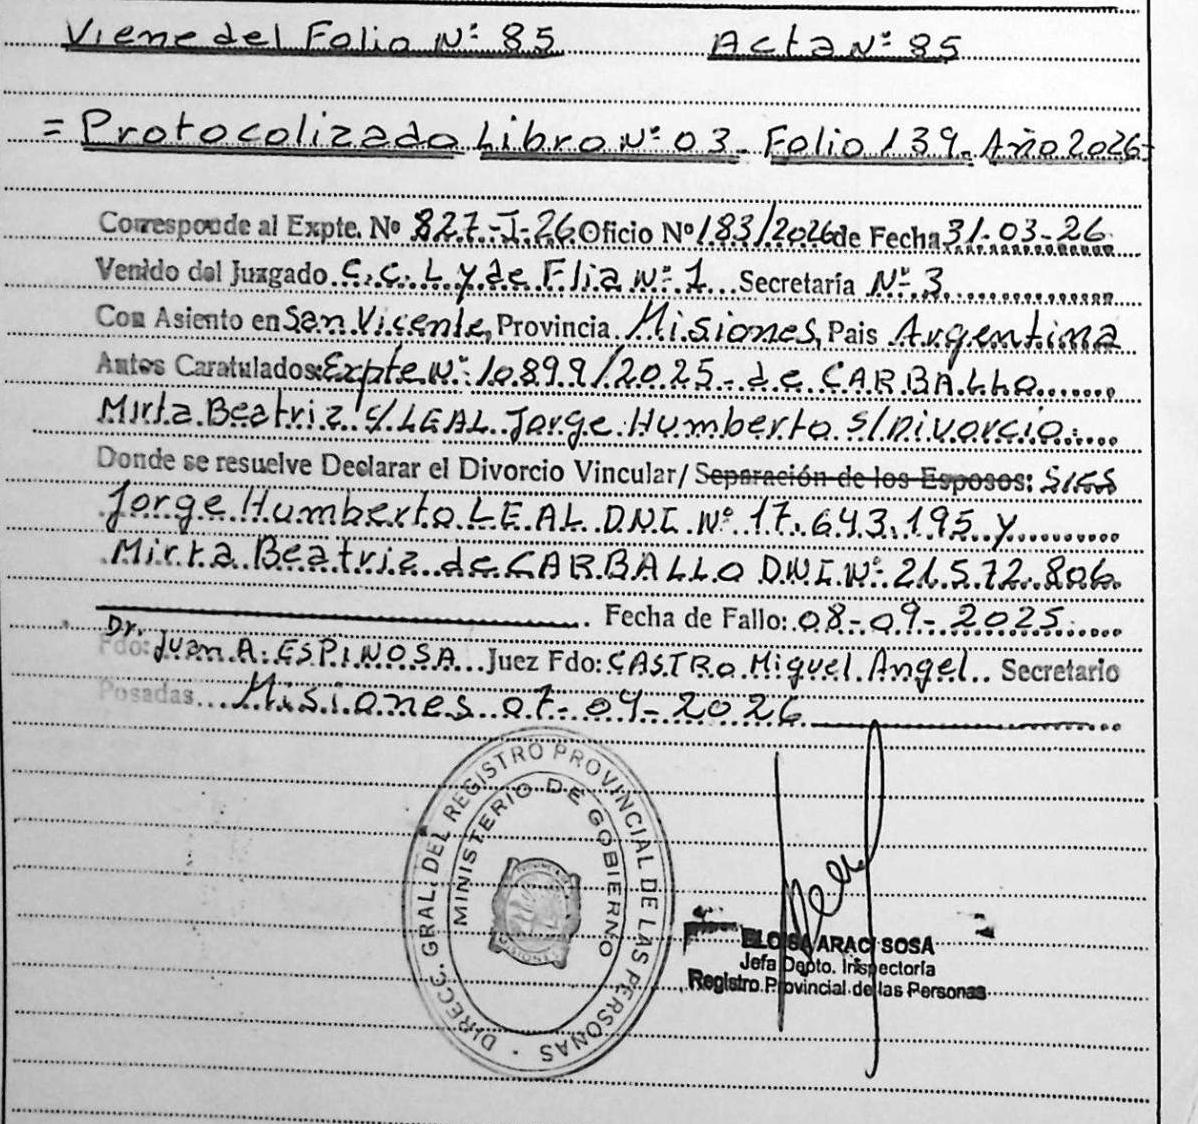 Viene del Folio Nº 85 Acta Nº 85
= Protocolizado Libro Nº 03 - Folio 139 - Año 2026 =
Corresponde al Expte. Nº 827-I-26 Oficio Nº 183/2026 de Fecha 31-03-26
Venido del Juzgado C.C.L y de Flia Nº 1 Secretaria Nº 3
Con Asiento en San Vicente, Provincia Misiones, Pais Argentina
Autos Caratulados: Expte Nº 10899/2025 - de CARBALLO
Mirta Beatriz c/ LEAL Jorge Humberto s/Divorcio
Donde se resuelve Declarar el Divorcio Vincular/ Separación de los Esposos:
Jorge Humberto LEAL DNI Nº 17.643.195 y
Mirta Beatriz de CARBALLO DNI Nº 21.572.806
Fecha de Fallo: 08-09-2025
Dr.
Fdo: Juan A. ESPINOSA Juez Fdo: CASTRO Miguel Angel Secretario
Posadas Misiones 07-04-2026
DIRECC. GRAL. DEL REGISTRO PROVINCIAL DE LAS PERSONAS
MINISTERIO DE GOBIERNO
ELOISA ARACI SOSA
Jefa Dpto. Inspectoría
Registro Provincial de las Personas